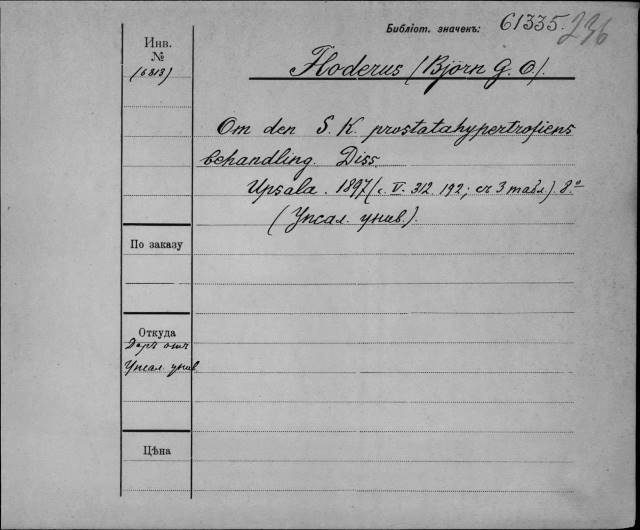 Библіот. значекъ: 61335. 236
Инв.
№
(6313)
Floderus (Björn G. O.).
Om den S. K. prostatahypertrofiens
behandling. Diss.
Upsala. 1897 (с. V. 312 192; съ 3 табл.) 8.°
(Упсал. унив.).
По заказу
Откуда
Даръ отъ
Упсал. унив.
Цѣна